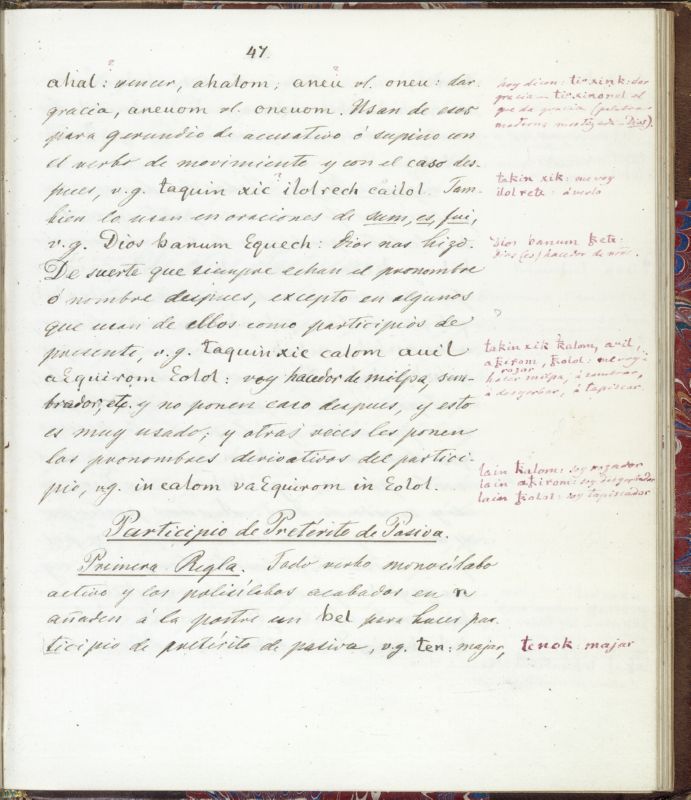 47.
ahal: vencer, ahalom; aneu vl. oneu: dar
gracia, aneuom vl. oneuom. Usan de esos
para gerundio de acusativo ó supino con
el verbo de movimiento y con el caso des-
pues, v.g. taquin xic ilolrech cailol. Tam-
bien lo usan en oraciones de sum, es, fui,
v.g. Dios banum Equech: Dios nos hizo.
De suerte que siempre echan el pronombre
ó nombre despues, excepto en algunos
que usan de ellos como participios de
presente, v.g. taquin xic calom auil
aEquirom Eolol: voy hacedor de milpa, sem-
brador, etc. y no ponen caso despues, y esto
es muy usado; y otras veces les ponen
los pronombres derivativos del partici-
pio, vg. in calom vaEquirom in Eolol.
Participio de Pretérito de Pasiva.
Primera Regla. Todo verbo monosílabo
activo y los polisílabos acabados en n
añaden á la postre un bel para hacer par-
ticipio de pretérito de pasiva, v.g. ten: majar,
hoy dicen: tixink: dar
gracia — tixinonel el
que da gracia (palabra
moderna mestizada — Dios).
takin xik: me voy
ilol rete: á verlo
Dios banum ke te:
Dios (es) hacedor de nos.
takin xik kalom, auil,
akirom, kolol: me voy á
rozar
hacer milpa, á sembrar,
á desyerbar, á tapiscar.
lain kalom: soy rozador
lain akirom: soy desyerbador
lain kolol: soy tapiscador
tenok: majar